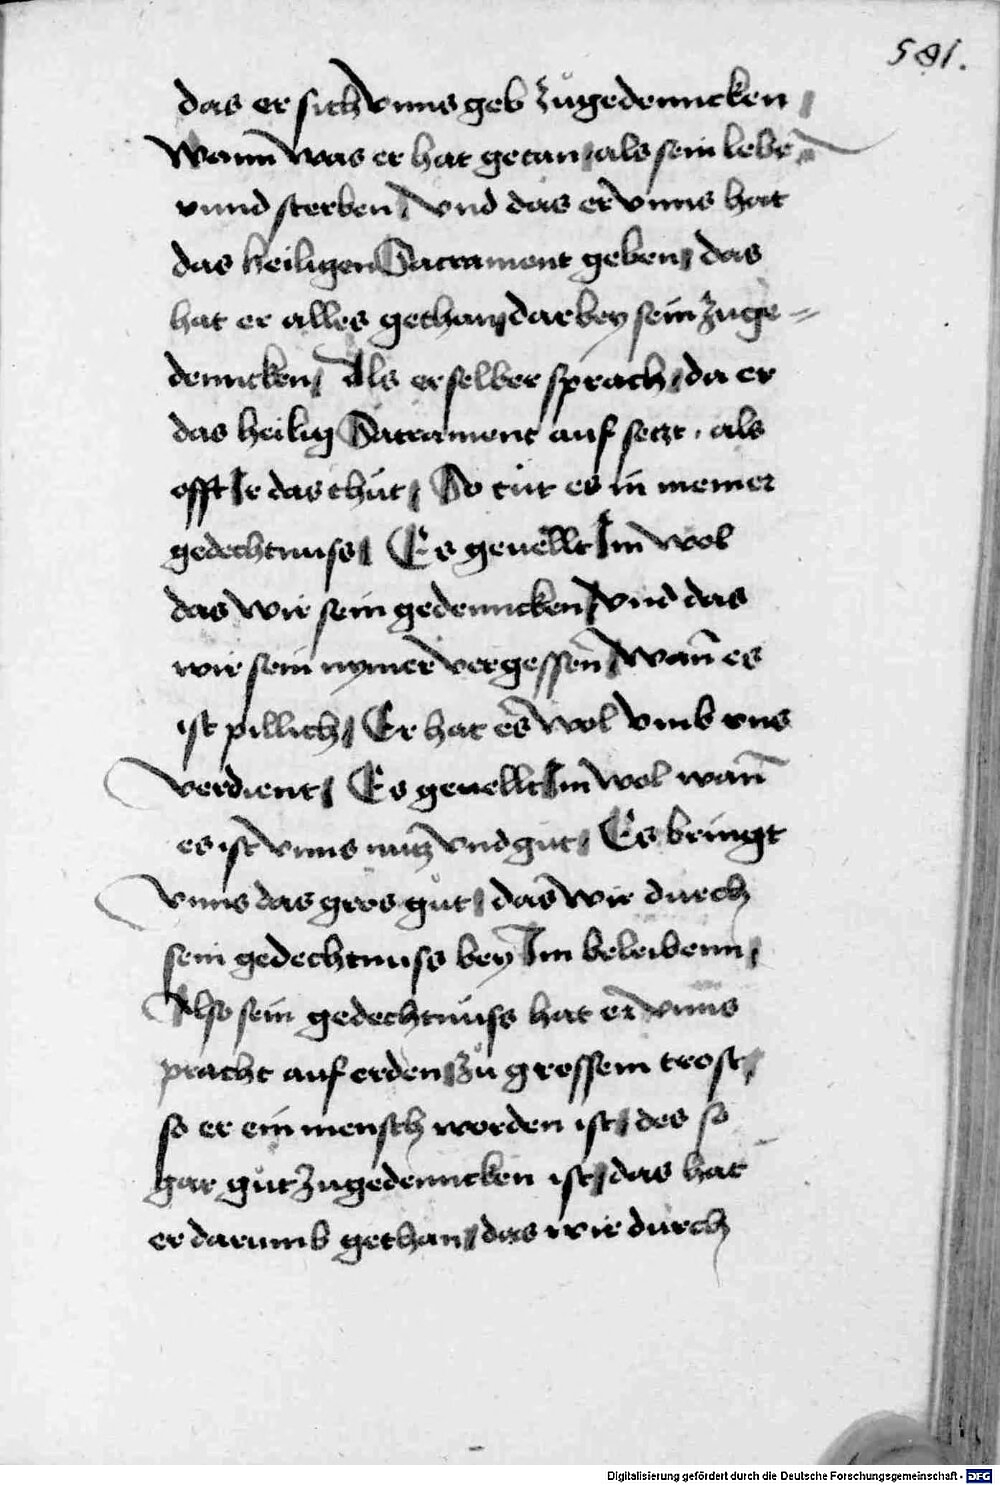 581.
das er sich vnns geb zůgedenncken /
Wann was er hat getan / als sein lebē
vnnd sterben / Vnd das er vnns hat
das heiligen Sacrament geben / das
hat er alles gethan / darbey sein zuge=
denncken / Als er selber sprach / da er
das heilig Sacrament auf setzt , als
offt Ir das thůt / So tůt es in meiner
gedechtnuss / Es geuellt Im wol
das wir sein gedenncken / Vnd das
wir sein nymer vergessen̄ / Wan̄ es
ist pillich / Er hat es wol vmb vns
verdient / Es geuellt Im wol wan̄
es ist vnns nutz vnd gůt / Es bringt
vnns das gros gůt / das wir durch
sein gedechtnuss bey Im beleibenn /
Also sein gedechtnuss hat er vnns
pracht auf erden / zů grossem trost /
so er ein mensch worden ist / des so
gar gůt zugedenncken ist / das hat
er darumb gethan / das wir durch
Digitalisierung gefördert durch die Deutsche Forschungsgemeinschaft - DFG